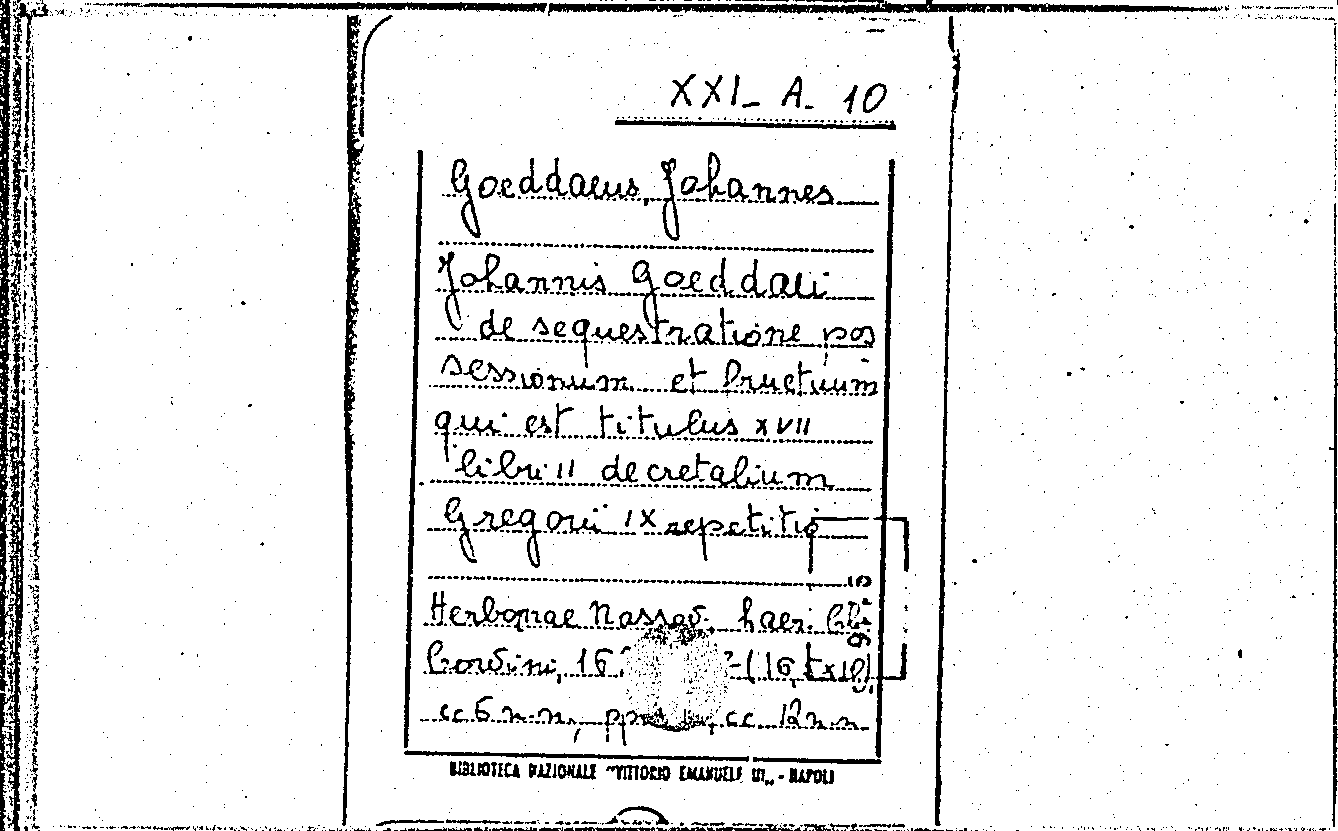 XXI- A- 10
Goeddaeus, Johannes
Johannis Goeddaei
de sequestratione pos
sessionum et fructuum
qui est titulus XVII
libri II decretalium
Gregorii IX repetitio
Herbornae Nassov., haer.
Corvini, 16
cc 6 n.n., cc. 12 n.n.
BIBLIOTECA NAZIONALE "VITTORIO EMANUELE III" - NAPOLI